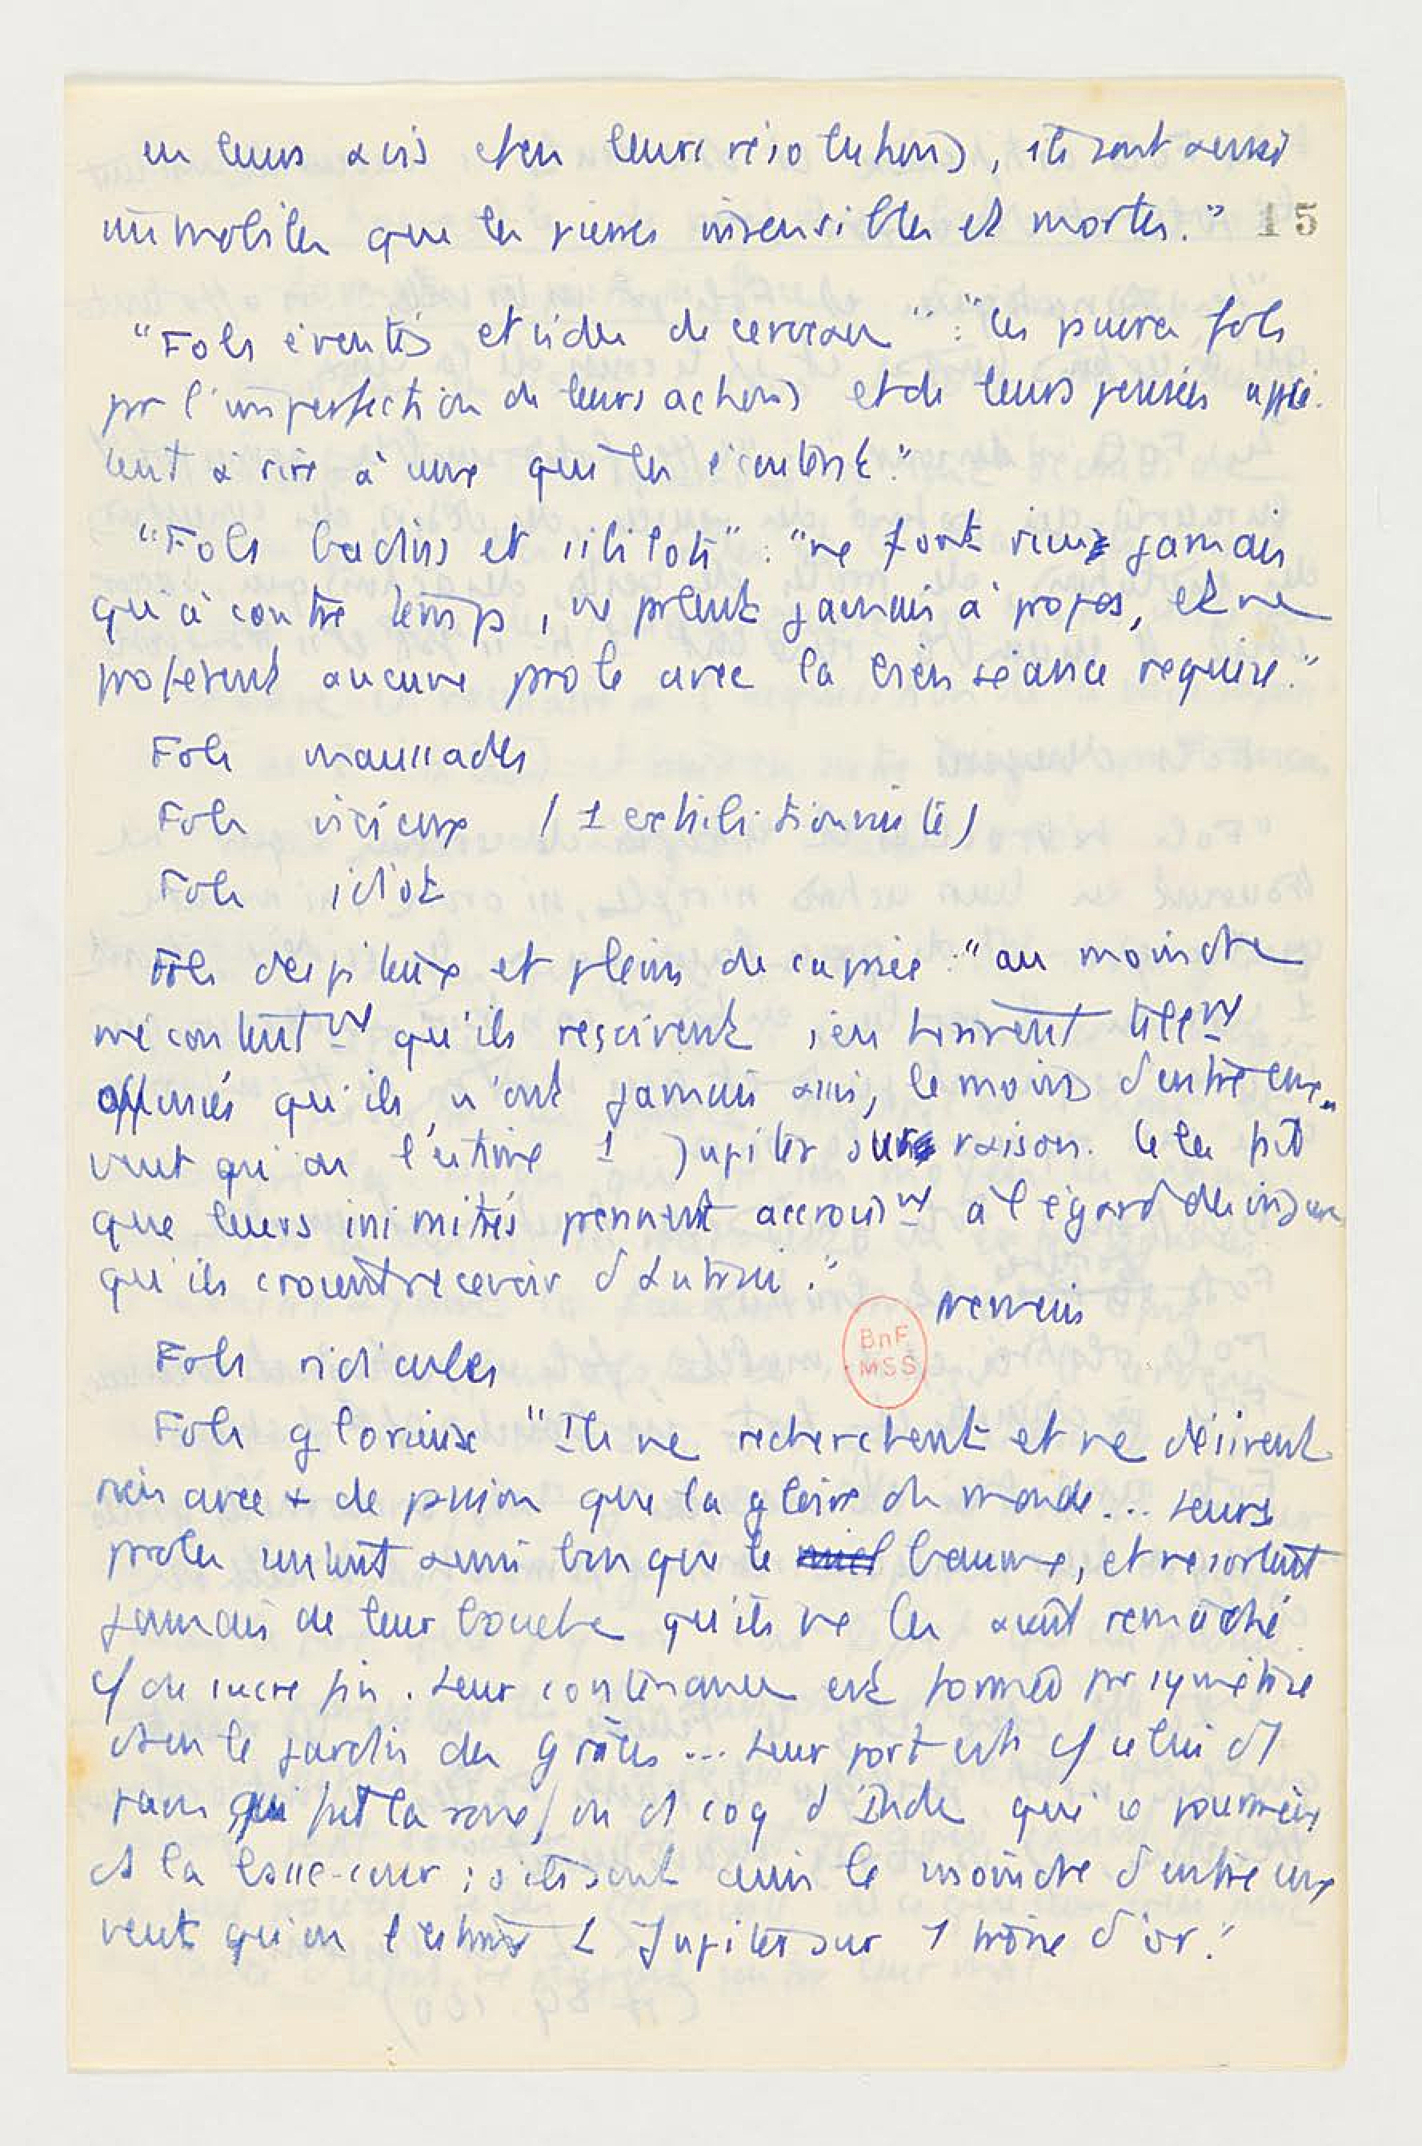 en leurs avis et en leurs résolutions, ils sont aussi
immobiles que les pierres insensibles et mortes."
15
"Fols éventés et vides de cerveau" : "les pauvres fols
pr l'imperfection de leurs actions et de leurs pensées apprê-
tent à rire à ceux qui les écoutent."
"Fols badins et" : "ne font rien jamais
qu'à contre temps, ne parlent jamais à propos, et ne
profèrent aucune parole avec la bien séance requise."
Fols maussades
Fols vicieux (1 exhibitionniste)
Fols idiots
Fols dépiteux et pleins de caprice : "au moindre
mécontent^nt qu'ils reçoivent, s'en trouvent telle^nt
offensés qu'ils n'ont jamais assis, le moins d'entre eux
veut qu'on l'estime 1 Jupiter sur raison.
que leurs inimitiés prennent accrois^nt à l'égard des
qu'ils croient recevoir d'autrui."
Fols ridicules
Fols glorieux "Ils ne recherchent et ne désirent
rien avec + de passion que la gloire du monde... Leurs
paroles sentent aussi bon que le miel baume, et ne sortent
jamais de leur bouche qu'ils ne les aient remâché
c/ du sucre fin. Leur contenance est formée par symétrie
dans le jardin des Grâces... Leur port est c/ celui d'1
paon qui fait la roue/ou d'1 coq d'Inde qui se pourmène
ds la basse-cour ; s'ils sont assis le moindre d'entre eux
veut qu'on l'estime 1 Jupiter sur 1 trône d'or."
BnF
MSS